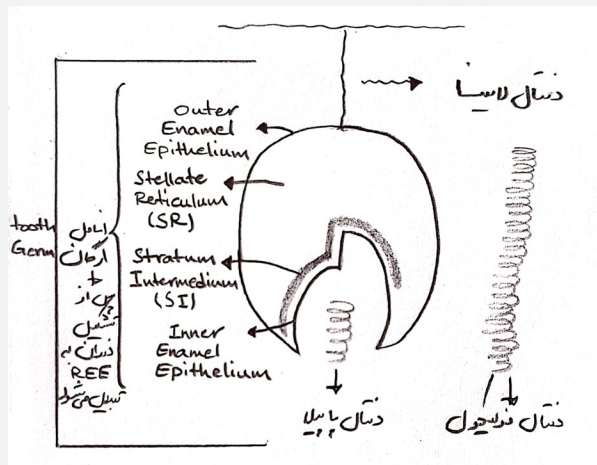 دنتال لامینا
Outer
Enamel
Epithelium
Stellate
Reticulum
(SR)
Stratum
Intermedium
(SI)
Inner
Enamel
Epithelium
tooth
Germ
انامل
ارگان
پس از
تشکیل
به
REE
تبدیل می‌شود
دنتال پاپیلا
دنتال فولیکول